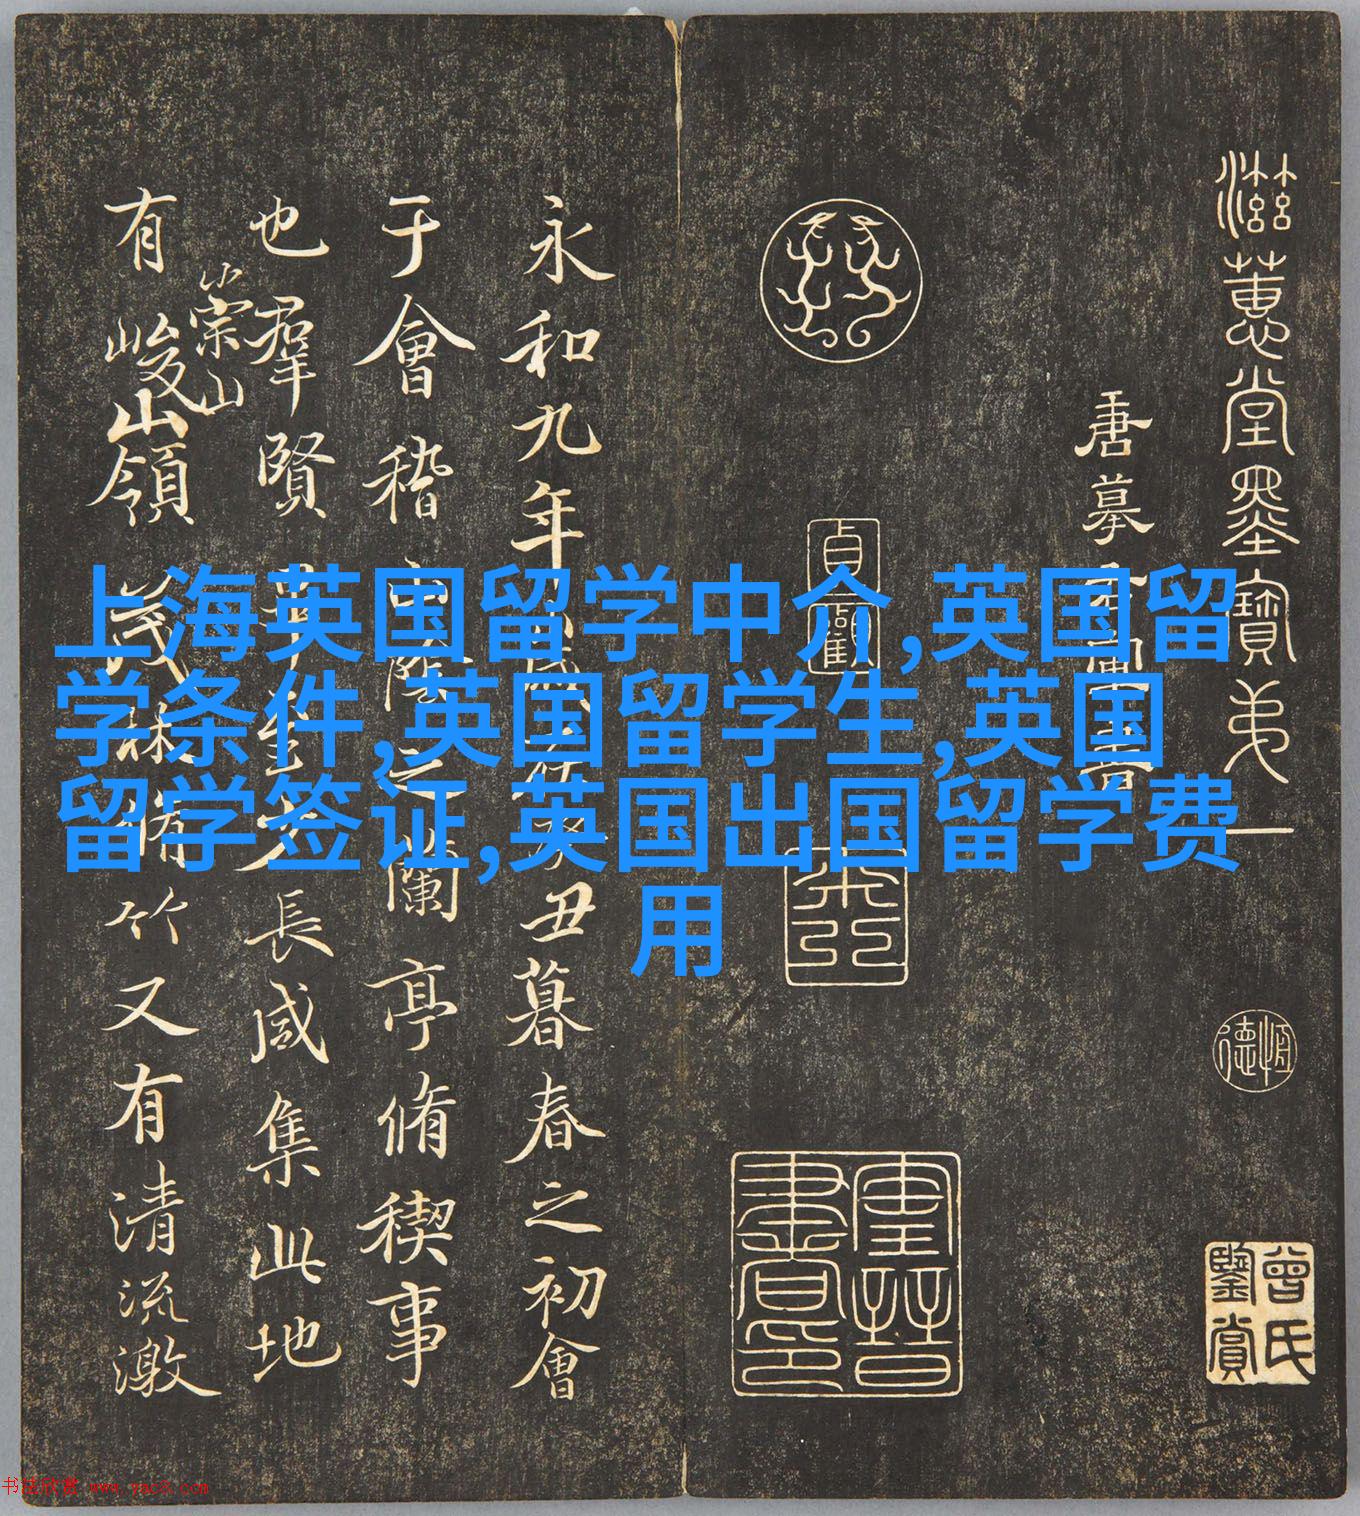 上海英国留学中介,英国留
学条件,英国留学生,英国
留学签证,英国出国留学费
用
滋蕙堂墨寶弟一
恒德
曾氏鑒賞
唐摹右軍書
貞
觀
永和九年歲在癸丑暮春之初會
于會稽山陰之蘭亭脩稧事
也羣賢畢至少長咸集此地
崇山
有峻領茂林脩竹又有清流激
书法欣赏 www.yac8.com